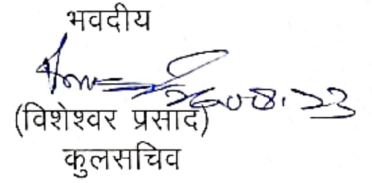 भवदीय
26.08.23
(विशेश्वर प्रसाद)
कुलसचिव